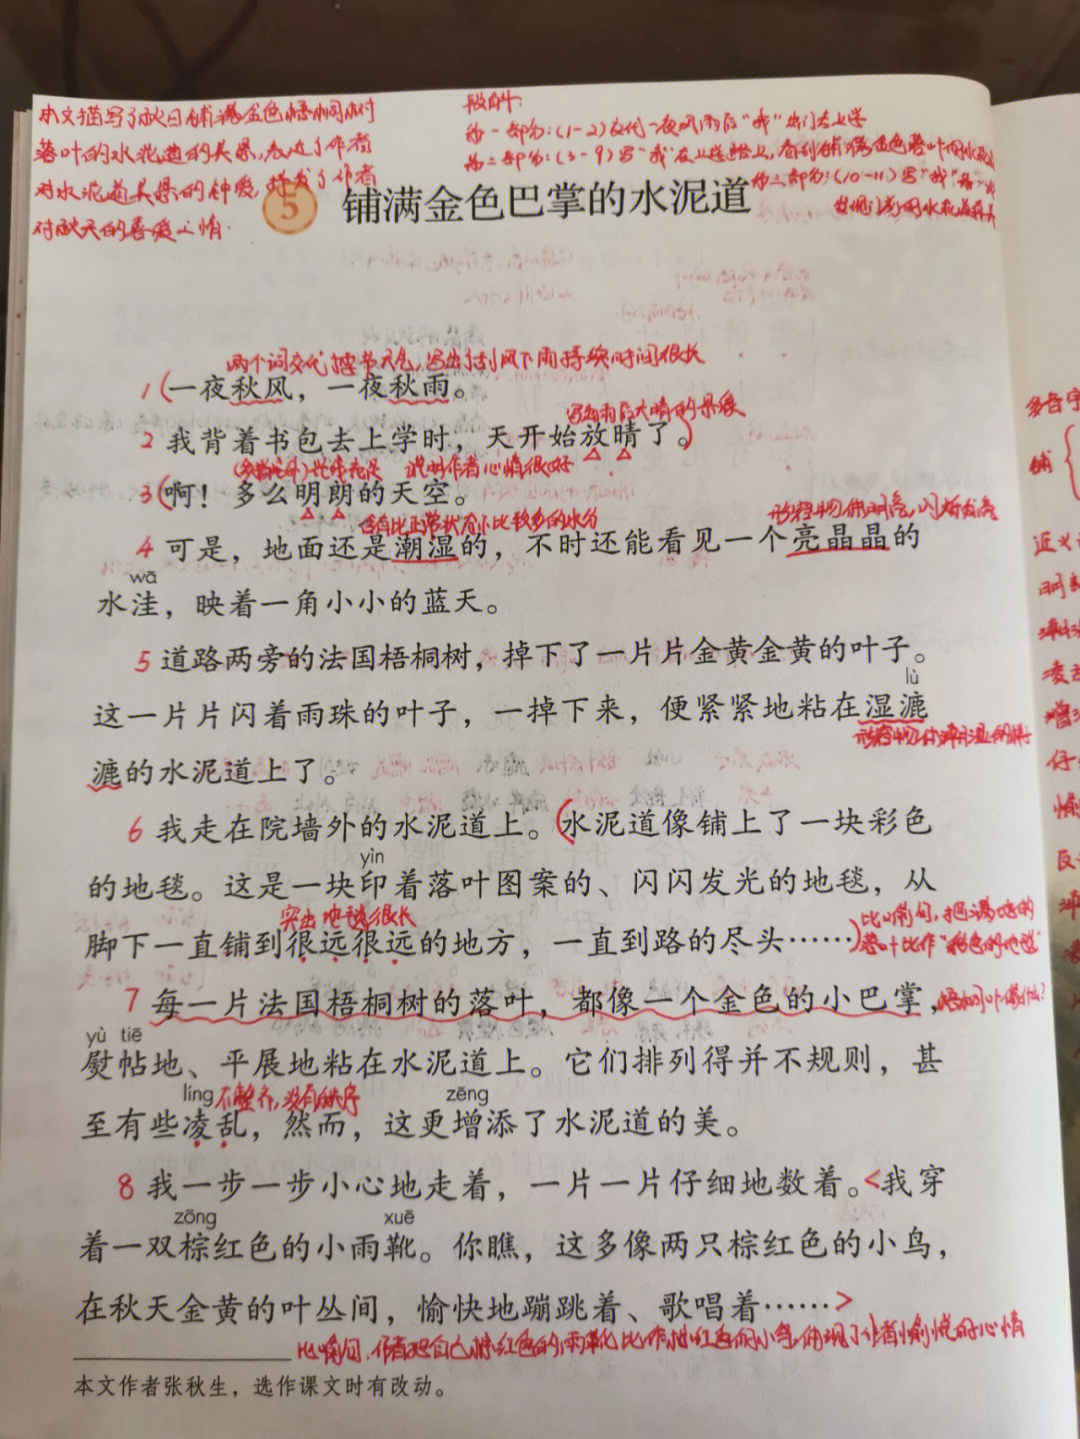 本文描写了秋日铺满金色梧桐树
落叶的水泥道的美景,表达了作者
对水泥道美景的钟爱,抒发了作者
对秋天的喜爱之情.
段解:
第一部分:(1-2)交代一夜风雨后"我"出门去上学
第二部分:(3-9)写"我"在上学路上,看到铺满金色落叶的水泥
第三部分:(10-11)写"我"第一次
发现门前的水泥道真美
5 铺满金色巴掌的水泥道
两个词交代季节天气,写出了刮风下雨持续时间很长
1(一夜秋风,一夜秋雨。
写出雨后天晴的景象
2 我背着书包去上学时,天开始放晴了。)
说明作者心情很好
3(啊!多么明朗的天空。
含有比正常状态下比较多的水分
形容物体明亮,闪烁发亮
4 可是,地面还是潮湿的,不时还能看见一个亮晶晶的
wā
水洼,映着一角小小的蓝天。
5 道路两旁的法国梧桐树,掉下了一片片金黄金黄的叶子。
lù
这一片片闪着雨珠的叶子,一掉下来,便紧紧地粘在湿漉
形容物体潮湿的样子
漉的水泥道上了。
6 我走在院墙外的水泥道上。(水泥道像铺上了一块彩色
yìn
的地毯。这是一块印着落叶图案的、闪闪发光的地毯,从
突出地毯很长
脚下一直铺到很远很远的地方,一直到路的尽头……)
比喻句,把满地的
落叶比作"彩色的地毯"
7 每一片法国梧桐树的落叶,都像一个金色的小巴掌,
梧桐叶像什么?
yù tiē
熨帖地、平展地粘在水泥道上。它们排列得并不规则,甚
líng 不整齐,没有秩序 zēng
至有些凌乱,然而,这更增添了水泥道的美。
8 我一步一步小心地走着,一片一片仔细地数着。<我穿
zōng xuē
着一双棕红色的小雨靴。你瞧,这多像两只棕红色的小鸟,
在秋天金黄的叶丛间,愉快地蹦跳着、歌唱着……>
比喻句,作者把自己棕红色的雨靴比作棕红色的小鸟,体现了作者愉悦的心情
本文作者张秋生,选作课文时有改动。
多音字
铺{
近义词